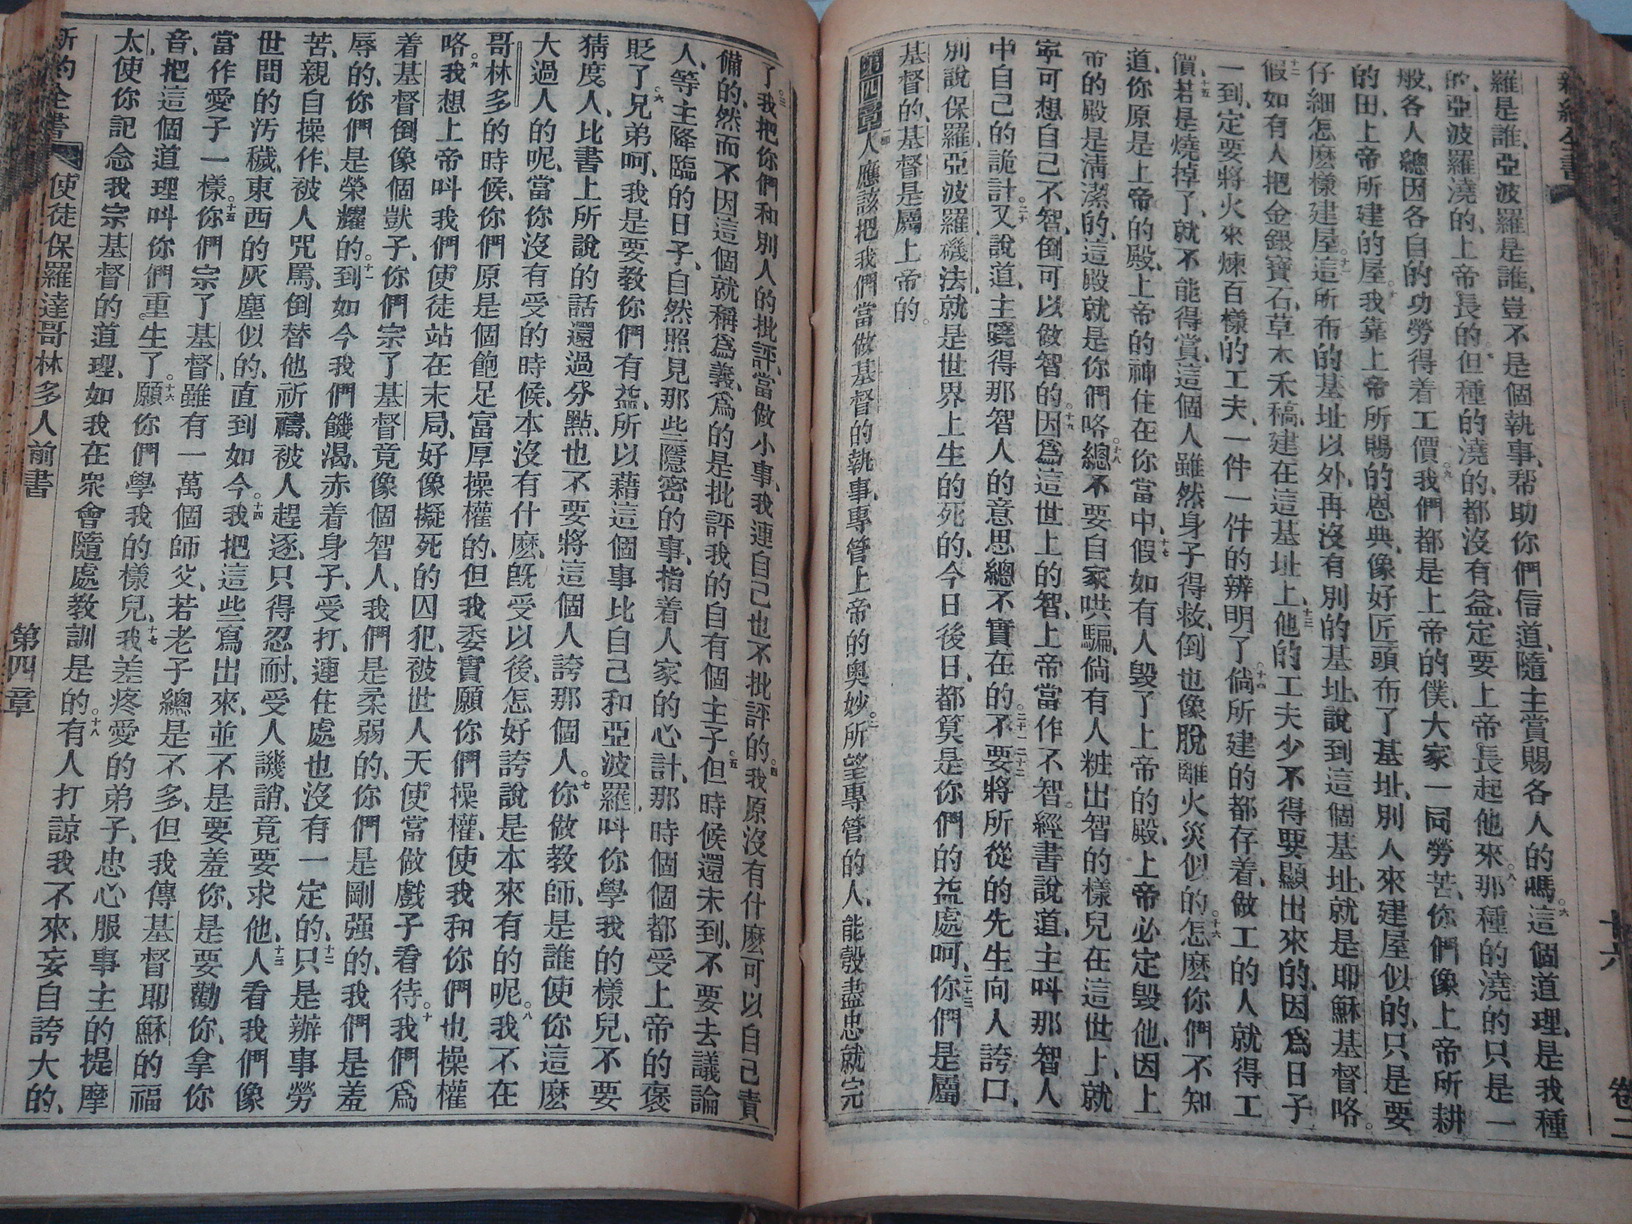 新約全書
卷二
十六
羅是誰、亞波羅是誰、豈不是個執事、帮助你們信道、隨主賞賜各人的嗎。六這個道理、是我種
的、亞波羅澆的、上帝長的。七但種的澆的、都沒有益、定要上帝長起他來。八那種的澆的只是一
般、各人總因各自的功勞得着工價。九我們都是上帝的僕、大家一同勞苦、你們像上帝所耕
的田、上帝所建的屋。十我靠上帝所賜的恩典、像好匠頭布了基址、別人來建屋似的、只是要
仔細怎麽樣建屋。十一這所布的基址以外、再沒有別的基址、說到這個基址、就是耶穌基督咯。
十二假如有人把金銀寶石、草木禾稿、建在這基址上、十三他的工夫少不得要顯出來的、因爲日子
一到、定要將火來煉百樣的工夫、一件一件的辨明了。十四倘所建的都存着、做工的人就得工
價。十五若是燒掉了、就不能得賞、這個人雖然身子得救、倒也像脫離火災似的。十六怎麽你們不知
道、你原是上帝的殿、上帝的神住在你當中、十七假如有人毀了上帝的殿、上帝必定毀他、因上
帝的殿是淸潔的、這殿就是你們咯。十八總不要自家哄騙、倘有人粧出智的樣兒在這世上、就
寧可想自己不智、倒可以做智的。十九因爲這世上的智、上帝當作不智。經書說道、主叫那智人
中自己的詭計。二十又說道、主曉得那智人的意思總不實在的。二十一不要將所從的先生向人誇口、
別說保羅亞波羅磯法、就是世界上生的死的、今日後日、都算是你們的益處呵。二十三你們是屬
基督的、基督是屬上帝的。
第四章 一人應該把我們當做基督的執事、專管上帝的奧妙。二所望專管的人、能彀盡忠就完
了。三我把你們和別人的批評、當做小事、我連自己也不批評的。四我原沒有什麽可以自己責
備的、然而不因這個就稱爲義、爲的是批評我的、自有個主子。五但時候還未到、不要去議論
人、等主降臨的日子、自然照見那些隱密的事、指着人家的心計、那時個個都受上帝的褒
貶了。六兄弟呵、我是要教你們有益、所以藉這個事比自己和亞波羅、叫你學我的樣兒、不要
猜度人、比書上所說的話還過分點、也不要將這個人誇那個人。七你做教師、是誰使你這麽
大過人的呢、當你沒有受的時候、本沒有什麽、旣受以後、怎好誇說是本來有的呢。八我不在
哥林多的時候、你們原是個飽足富厚操權的、但我委實願你們操權、使我和你們也操權
咯。九我想上帝叫我們使徒站在末局、好像擬死的囚犯、被世人天使當做戲子看待。十我們爲
着基督倒像個獃子、你們宗了基督竟像個智人、我們是柔弱的、你們是剛强的、我們是羞
辱的、你們是榮耀的。十一到如今我們饑渴、赤着身子、受打、連住處也沒有一定的、十二只是辦事勞
苦、親自操作、被人咒罵、倒替他祈禱、被人趕逐、只得忍耐、受人譏誚、竟要求他、十三人看我們像
世間的汚穢東西的灰塵似的、直到如今。十四我把這些寫出來、並不是要羞你、是要勸你、拿你
當作愛子一樣。十五你們宗了基督、雖有一萬個師父、若老子總是不多、但我傳基督耶穌的福
音、把這個道理叫你們重生了。十六願你們學我的樣兒、十七我差疼愛的弟子、忠心服事主的提摩
太、使你記念我宗基督的道理、如我在衆會隨處教訓是的。十八有人打諒我不來、妄自誇大的、
新約全書
使徒保羅達哥林多人前書
第四章